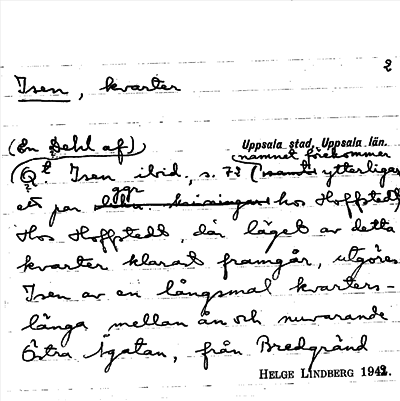 2
Isen, kvarter
(En Dehl af)
Uppsala stad, Uppsala län.
namnet förekommer
Qt. Isen ibid., s. 73 ( ytterligare
ett par ggr hos Hoffstedt
Hos Hoffstedt, där läget av detta
kvarter klarast framgår, utgöres
Isen av en långsmal kvarters-
länga mellan ån och nuvarande
Östra Ågatan, från Bredgränd
HELGE LINDBERG 1942.